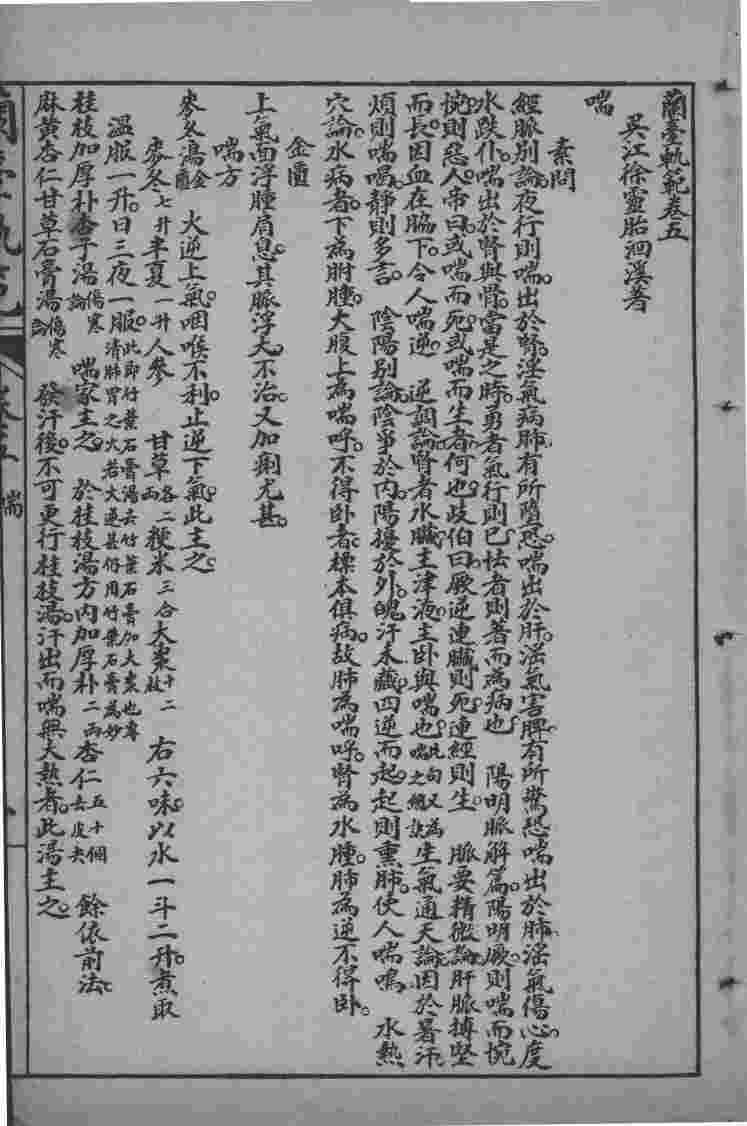 蘭臺軌範卷五
吳江徐靈胎洄溪著
喘
素問
經脈別論夜行則喘出於腎淫氣病肺有所墮恐喘出於肝滛氣害脾有所驚恐喘出於肺滛氣傷心度
水跌仆喘出於腎與骨當是之時勇者氣行則已怯者則著而為病也 陽明脈解篇陽明厥則喘而惋
惋則惡人帝曰或喘而死或喘而生者何也岐伯曰厥逆連臟則死連經則生 脈要精微論肝脈搏堅
而長因血在脇下令人喘逆 逆調論腎者水臟主津液主卧與喘也此句又為喘之總訣 生氣通天論因於暑汗
煩則喘喝靜則多言 陰陽別論陰爭於內陽擾於外魄汗未藏四逆而起起則熏肺使人喘鳴 水熱
穴論水病者下為胕腫大腹上為喘呼不得卧者標本俱病故肺為喘呼腎為水腫肺為逆不得卧
金匱
上氣面浮腫肩息其脈浮大不治又加痢尤甚
喘方
麥冬湯金匱 火逆上氣咽喉不利止逆下氣此主之
麥冬七升半夏一升人參 甘草各二兩粳米三合大棗十二枚 右六味以水一斗二升煮取
溫服一升日三夜一服此即竹葉石膏湯去竹葉石膏加大棗也專清肺胃之火若大逆甚仍用竹葉石膏為妙
桂枝加厚朴杏子湯傷寒論 喘家主之 於桂枝湯方內加厚朴二兩杏仁五十個去皮尖 餘依前法
麻黃杏仁甘草石膏湯傷寒論 發汗後不可更行桂枝湯汗出而喘無大熱者此湯主之
蘭臺軌範 卷五 喘